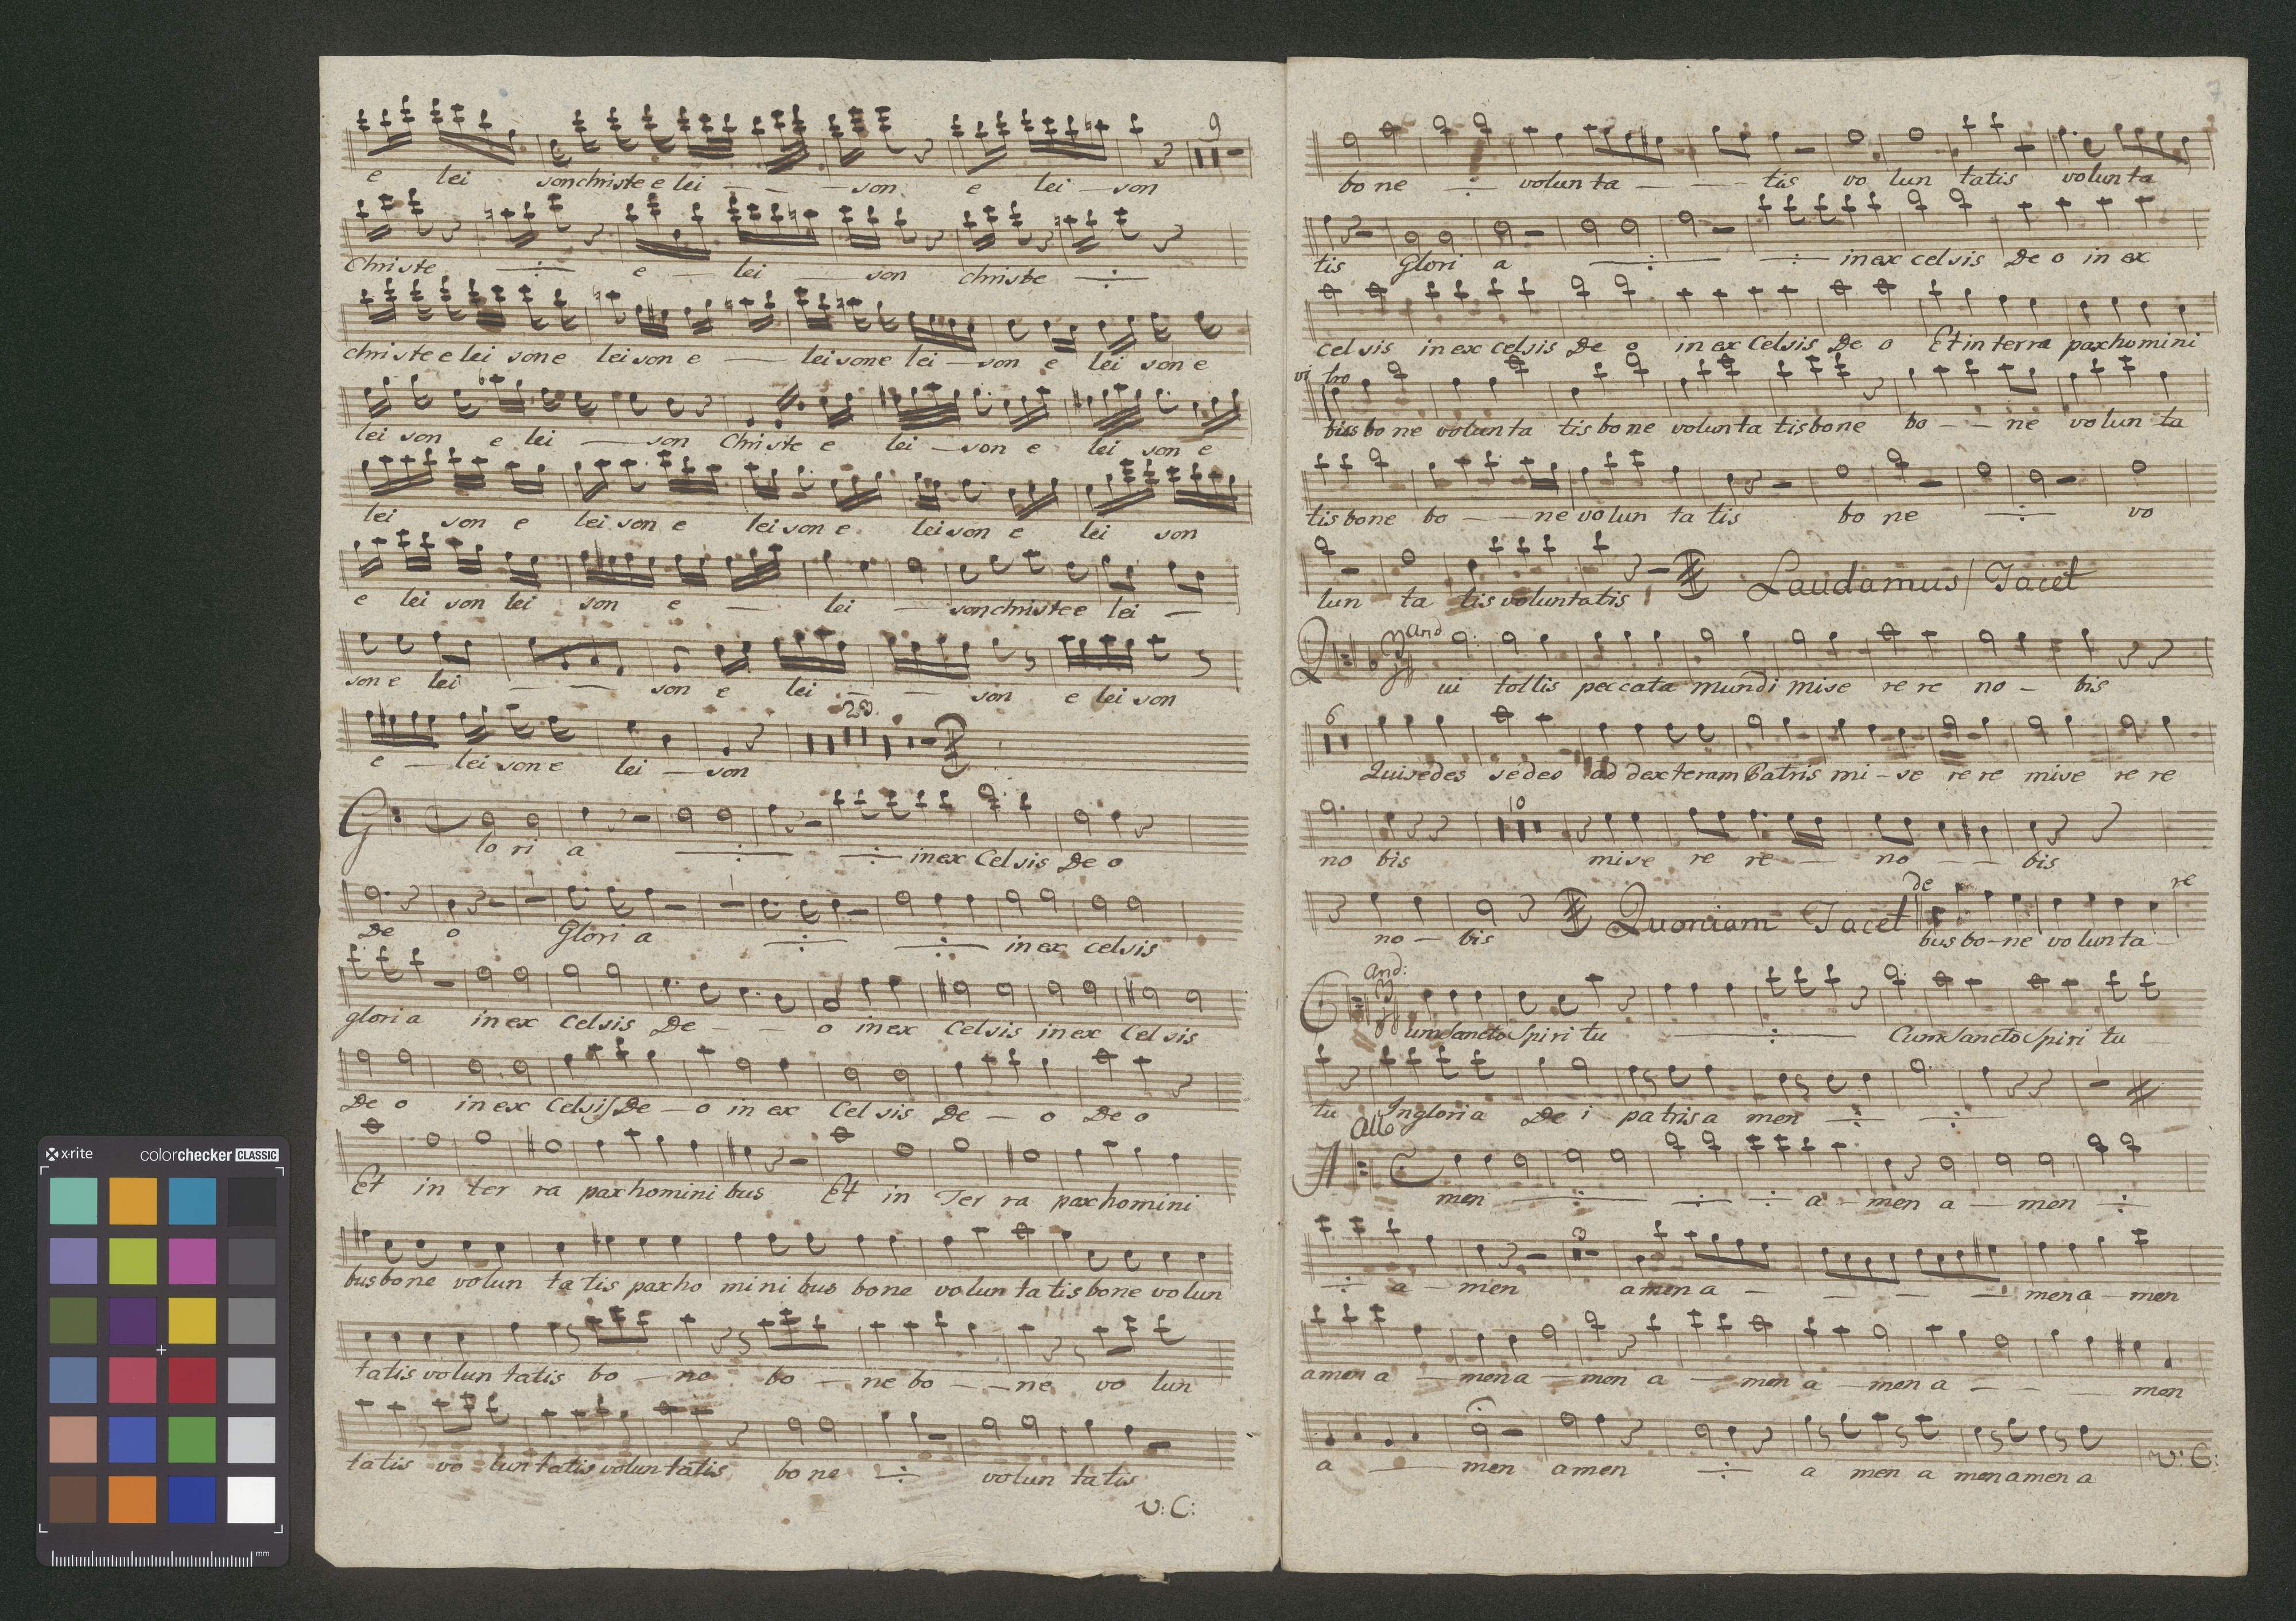 9
e lei son christe e lei - - - son e lei - son
Christe ÷ e - lei - son christe ÷
christe e lei son e lei son e - lei son e lei - son e lei son e
lei son e lei - son Christe e lei - son e lei son e
lei son e lei son e lei son e lei son e lei son
e lei son lei son e - lei - son christe e lei -
son e lei - - son e lei - - son e lei son
28.
e - lei son e lei - son
G lo ri a ÷ ÷ in ex Celsis De o
De o Glori a ÷ ÷ in ex celsis
gloria in ex Celsis De - - o in ex Celsis in ex Celsis
De o in ex Celsis De - o in ex Celsis De - o De o
Et in ter ra pax homini bus Et in Ter ra pax homini
bus bone volun ta tis pax ho mini bus bone volun ta tis bone volun
tatis volun tatis bo - ne bo - ne bo - - ne vo lun
tatis vo lun tatis volun tatis bo ne ÷ volun tatis
v: C:
7
bo ne ÷ volun ta - - - tis vo lun tatis volun ta
tis Glori a ÷ ÷ in ex celsis De o in ex
celsis in ex celsis De o in ex Celsis De o Et in terra pax homini
vi tro
bus bo ne volun ta tis bo ne volun ta tis bone bo - - ne volun ta
tis bone bo - - ne volun ta tis bo ne ÷ vo
lun ta tis voluntatis Laudamus / Tacet
And
Q ui tollis peccata mundi mise re re no - bis
6
Qui sedes sedes ad dexteram Patris mi - se re re mise re re
10
no bis mise re re - no - - bis
de re
no - bis Quoniam Tacet bus bo - ne volun ta -
And:
C um Sancto Spiri tu ÷ Cum Sancto Spiri tu
tu In gloria De i patris a men ÷ ÷
All
A men ÷ ÷ ÷ a - men a - men ÷
3
÷ a - men amen a - - - - men a - men
amen a - men a - men a - men a - men a - - - men
a - men amen ÷ a men a men amen a
v: C:
x-rite colorchecker CLASSIC
mm